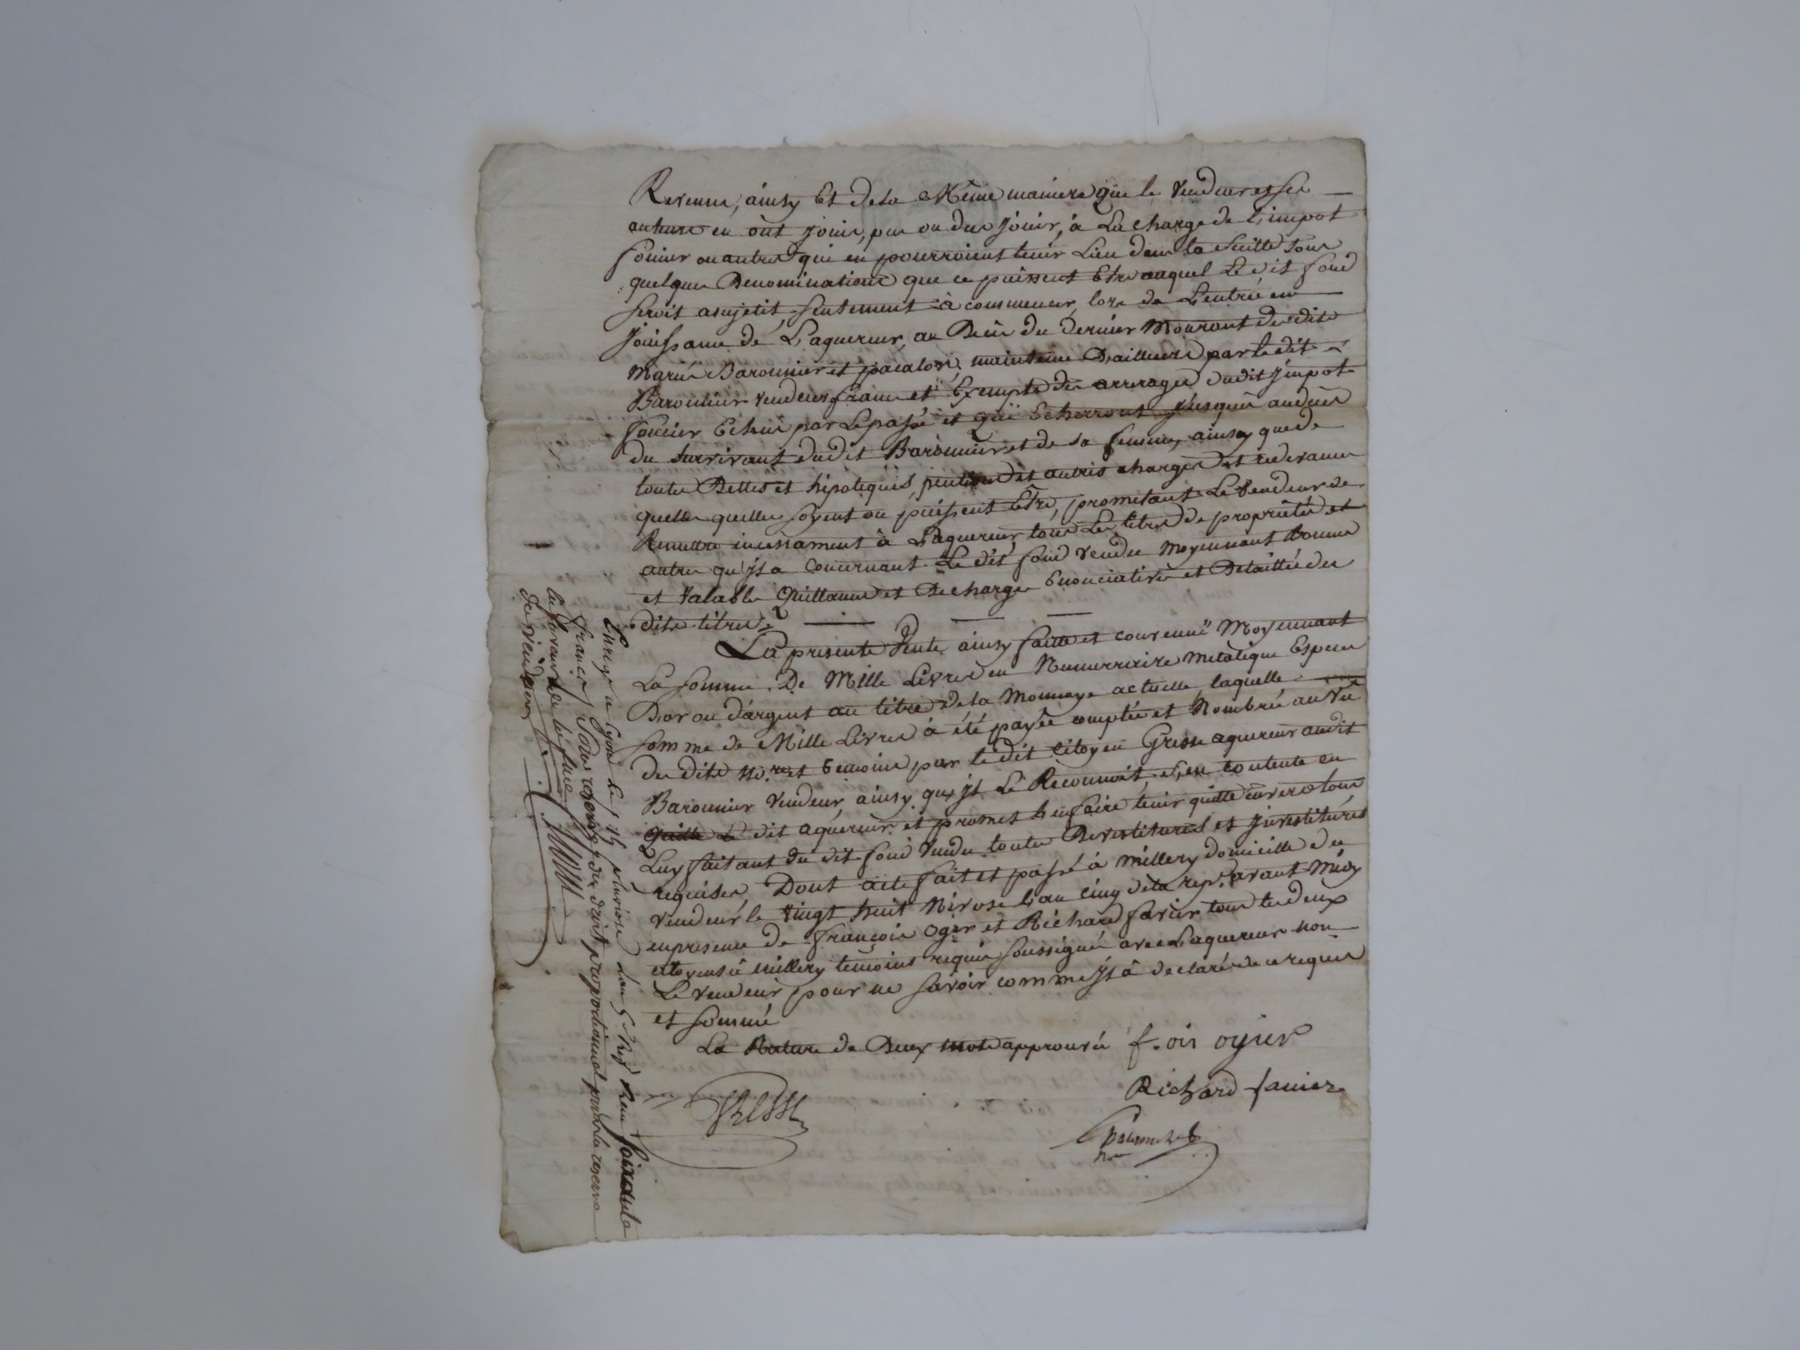 Revenue, ainsy Et de la Même maniere que le Vendeur et ses
auteurs en ont jouie, pue ou due jouir, à La charge de L'impot
foncier ou autres qui en pourroient tenir Lieu dans la Suitte sous
quelques Denominations que ce puissent Etre auquel Le dit fond
seroit asujetit seulement à commencer, lors de L'entrée en
jouissance de L'aquereur, au Décès du dernier Mourant desdits
Mariés Barounier et pacalon, maintenue D'ailleurs par le dit
Barounier vendeur franc et Exempte des arrerages dudit jmpot
foncier Echue par Le passé et qui Echerront jusques au decès
du Survivant dudit Barounier et de sa femme, ainsy que de
toutes Dettes et hipoteques, et autres charges et redevances
quelles quelles soyent ou puissent Etre, prometant Le Vendeur de
Remettre incessament à L'aquereur tous Les titres de propriétée et
autres qu'js a concernant Le dit fond vendu Moyennant bonne
et Valable Quittance et Decharge Enonciative et Detaillée des
dits titres
La presente Vente ainsy faitte et convenue Moyennant
La somme De Mille Livres en Numerraire metalique Especes
D'or ou d'argent au titre de la Monnoye actuelle, laquelle
somme de Mille Livres à été payée comptée et Nombrée au Vû
des dits No.res et temoins par le dit Citoyen Gresse aquereur audit
Barounier Vendeur, ainsy qu'js Le Reconnoit, s'en contente en
quitte Le dit aquereur et promet L'en faire tenir quitte envers tous
Luy faitant du dit fond Vendu toutes Devestitures et jnvestitures
requises, Dont acte fait et passé à millery domicille du
vendeur le vingt huit Nivose L'an cinq de la rep.e avant Midy
en presence de François Ogier et Richard favier tous les deux
citoyens à millery temoins requis soussignés avec L'aquereur non
Le Vendeur pour ne savoir comme js à declaré de ce requis
et sommé
La Rature de Deux mots approuvée f.ois ogier
Richard favier
GRESSE
Enregé à Lyon Le 15 pluviose L'an 5.e Rep. Reçu
francs, sous reserve du droit proportionnel pour la reserve